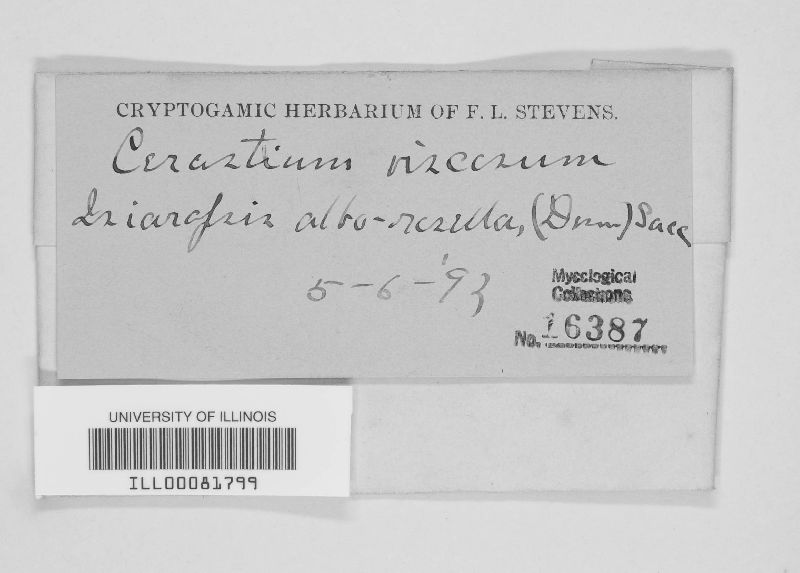 CRYPTOGAMIC HERBARIUM OF F. L. STEVENS.
Cerastium viscosum
Isiaropsis albo-rosella, (Desm) Sacc
5-6-'93
Mycological
Collections
No. 16387
UNIVERSITY OF ILLINOIS
ILL00081799